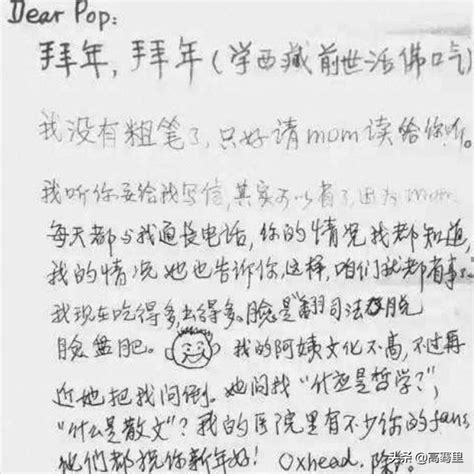 Dear Pop:
拜年,拜年(学西藏前世活佛口气)
我没有粗笔了,只好请mom读给你听。
我听你要给我写信,其实可以省了,因为mom
每天都与我通长电话,你的情况我都知道,
我的情况她也告诉你,这样,咱们就都有事
我现在吃得多,出得多。脸是"翻司法脱
脸盘肥。 我的阿姨文化不高,不过再
近她把我问倒。她问我"什么是哲学?",
"什么是散文"?我的医院里有不少你的fans,
他们都祝你新年好! Oxhead. 陈。
头条 @高骞里